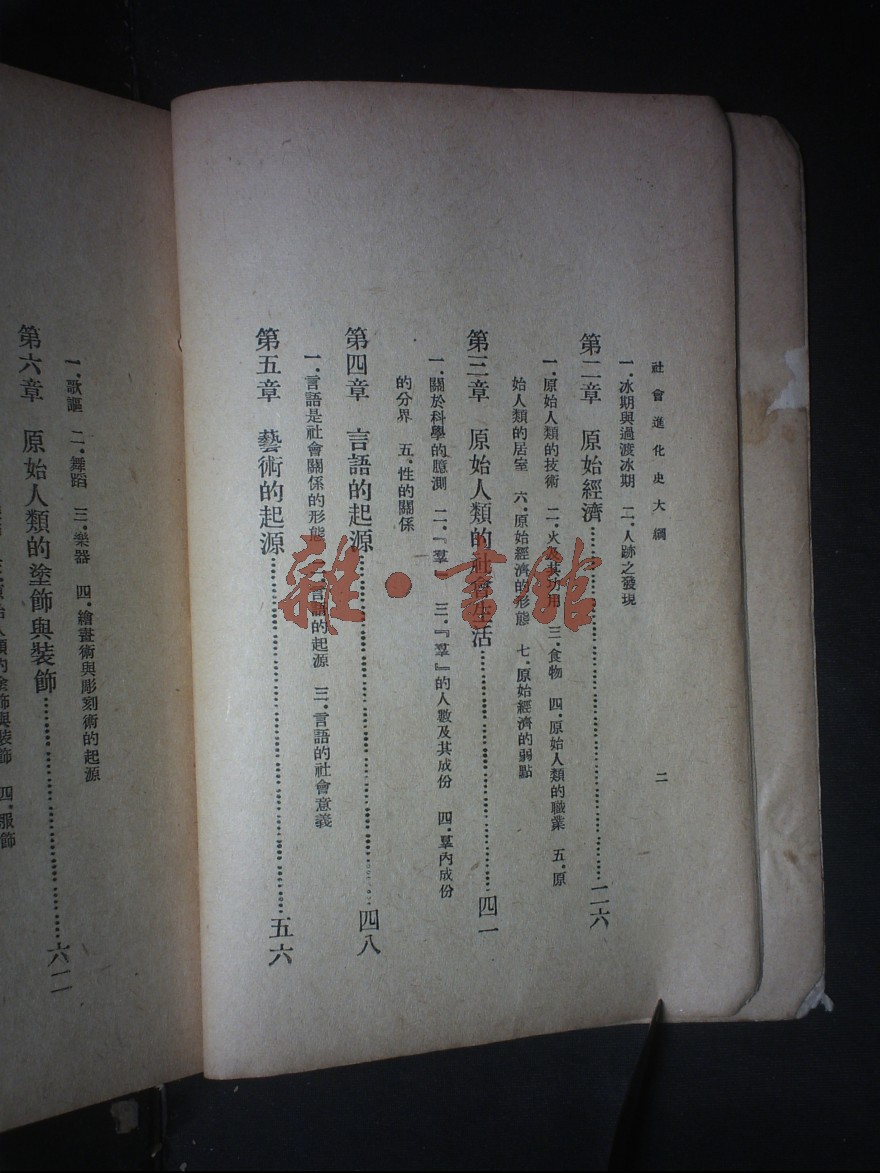 社會進化史大綱
二
一.冰期與過渡冰期 二.人跡之發現
第二章 原始經濟……二六
一.原始人類的技術 二.火及其功用 三.食物 四.原始人類的職業 五.原
始人類的居室 六.原始經濟的形態 七.原始經濟的弱點
第三章 原始人類的社會生活……四一
一.關於科學的臆測 二.『羣』 三.『羣』的人數及其成份 四.羣內成份
的分界 五.性的關係
第四章 言語的起源……四八
一.言語是社會關係的形態 二.言語的起源 三.言語的社會意義
第五章 藝術的起源……五六
一.歌謳 二.舞蹈 三.樂器 四.繪畫術與彫刻術的起源
第六章 原始人類的塗飾與裝飾……六二
人類的塗飾與裝飾 四.服飾
雜·書館